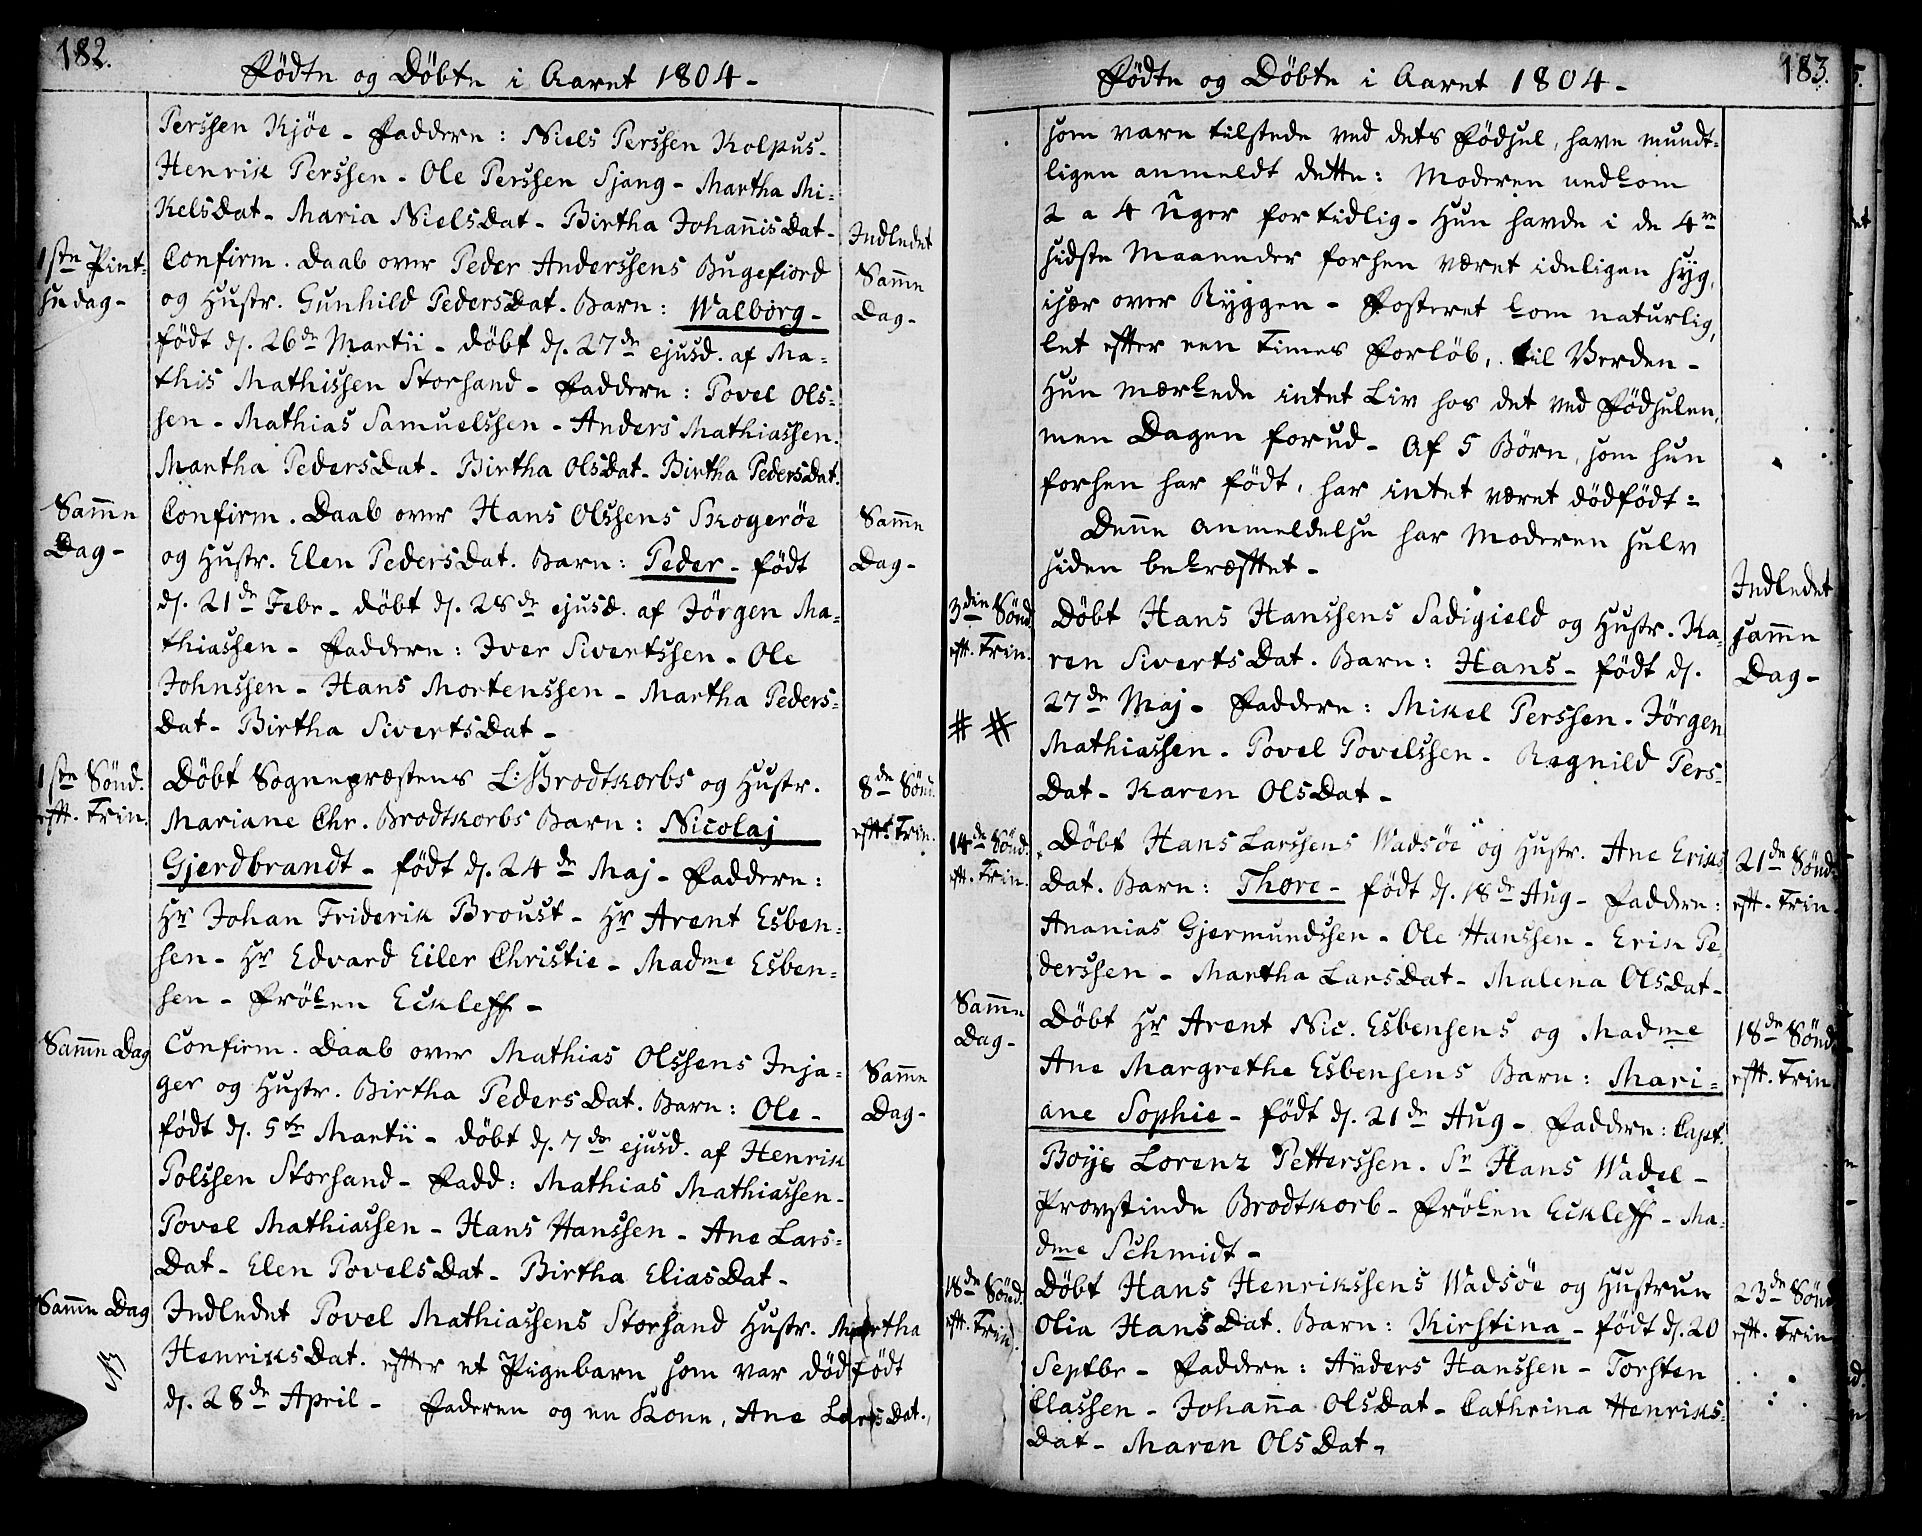 182.
Födte og Döbte i Aaret 1804 -
Perssen Kjöe - Faddere: Niels Perssen Kolpus-
Henrik Perssen - Ole Perssen Sjang - Martha Mi-
kelsDat - Maria NielsDat - Birtha JohannisDat -
Indledet
Samme
Dag -
1ste Pint-
sedag -
Confirm. Daab over Peder Anderssens Bugefiord
og Hustr. Gunhild PedersDat. Barn: Walborg -
födt d. 26de Martii - döbt d. 27de ejusd. af Ma-
this Mathissen Storsand - Faddere: Povel Ols-
sen - Mathias Samuelssen - Anders Mathiassen.
Martha PedersDat - Birtha OlsDat - Birtha PedersDat.
Samme
Dag -
Confirm. Daab over Hans Olssens Skogeröe
og Hustr. Elen PedersDat. Barn: Peder - födt
d. 21de Febr - döbt d. 28de ejusd. af Jörgen Ma-
thiassen - Faddere: Iver Sivertssen - Ole
Johnssen - Hans Mortenssen - Martha Peders-
Dat - Birtha SivertsDat -
Samme
Dag -
1ste Sönd.
eftt. Trin.
Döbt Sognepræstens L: Brodtkorbs og Hustr.
Mariane Chr. Brodtkorbs Barn: Nicolaj
Gjerdbrandt - födt d. 24de Maj - Faddere:
Hr Johan Friderik Broust - Hr Arent Esben-
sen - Hr Edvard Eiler Christie - Madme Esben-
sen - Fröken Eckleff -
8de Sönd.
eftt. Trin.
Samme Dag
Confirm. Daab over Mathias Olssens Inja-
ger og Hustr. Birtha PedersDat. Barn: Ole -
födt d. 5te Martii - döbt d. 7de ejusd. af Henrik
Polssen Storsand - Fadd: Mathias Mathiassen -
Povel Mathiassen - Hans Hanssen - Ane Lars-
Dat - Elen PovelsDat - Birtha EliasDat -
Samme
Dag -
Samme Dag
Indledet Povel Mathiassens Storsand Hustr. Martha
HenriksDat. efter et Pigebarn som var dödfödt
d. 28de April - Faderen og en Kone, Ane LarsDat.,
183.
Födte og Döbte i Aaret 1804 -
som vare tilstede ved dets Födsel, have mundt-
ligen anmeldt dette: Moderen nedkom
2 a 4 Uger fortidlig - Hun havde i de 4re
sidste Maaneder forhen været ideligen syg,
især over Ryggen - Fosteret kom naturlig,
let efter een Times Forlöb, til Verden -
Hun mærkede intet Liv hos det ved Födselen,
men Dagen forud - Af 5 Börn, som hun
forhen har födt, har intet været dödfödt =
Denne Anmeldelse har Moderen selv
siden bekræfttet -
3die Sönd.
eftt. Trin.
# #
Döbt Hans Hanssens Sadigield og Hustr. Ka-
ren SivertsDat. Barn: Hans - födt d.
27de Maj - Faddere: Mikel Perssen - Jörgen
Mathiassen - Povel Povelssen - Ragnild Pers-
Dat - Karen OlsDat -
Indledet
samme
Dag -
14de Sönd.
eftt. Trin.
Döbt Hans Larssens Wadsöe og Hustr. Ane Eriks
Dat. Barn: Thore - födt d. 18de Aug - Faddere:
Ananias Gjermundssen - Ole Hanssen - Erik Pe-
derssen - Martha LarsDat - Malena OlsDat -
21de Sönd.
eftt. Trin.
Samme
Dag -
Döbt Hr Arent Nic. Esbensens og Madme
Ane Margrethe Esbensens Barn: Mari-
ane Sophie - födt d. 21de Aug - Faddere: Capt.
Boije Lorenz Petterssen. Sr Hans Wadel -
Provstinde Brodtkorb - Fröken Eckleff - Ma-
dme Schmidt -
18de Sönd.
eftt. Trin.
18de Sönd.
eftt. Trin.
Döbt Hans Henrikssens Wadsöe og Hustrue
Olia HansDat. Barn: Kirstina - födt d. 20
Septbr - Faddere: Anders Hanssen - Torsten
Classen - Johanna OlsDat - Cathrina Henriks-
Dat - Maren OlsDat -
23de Sönd.
eftt. Trin.